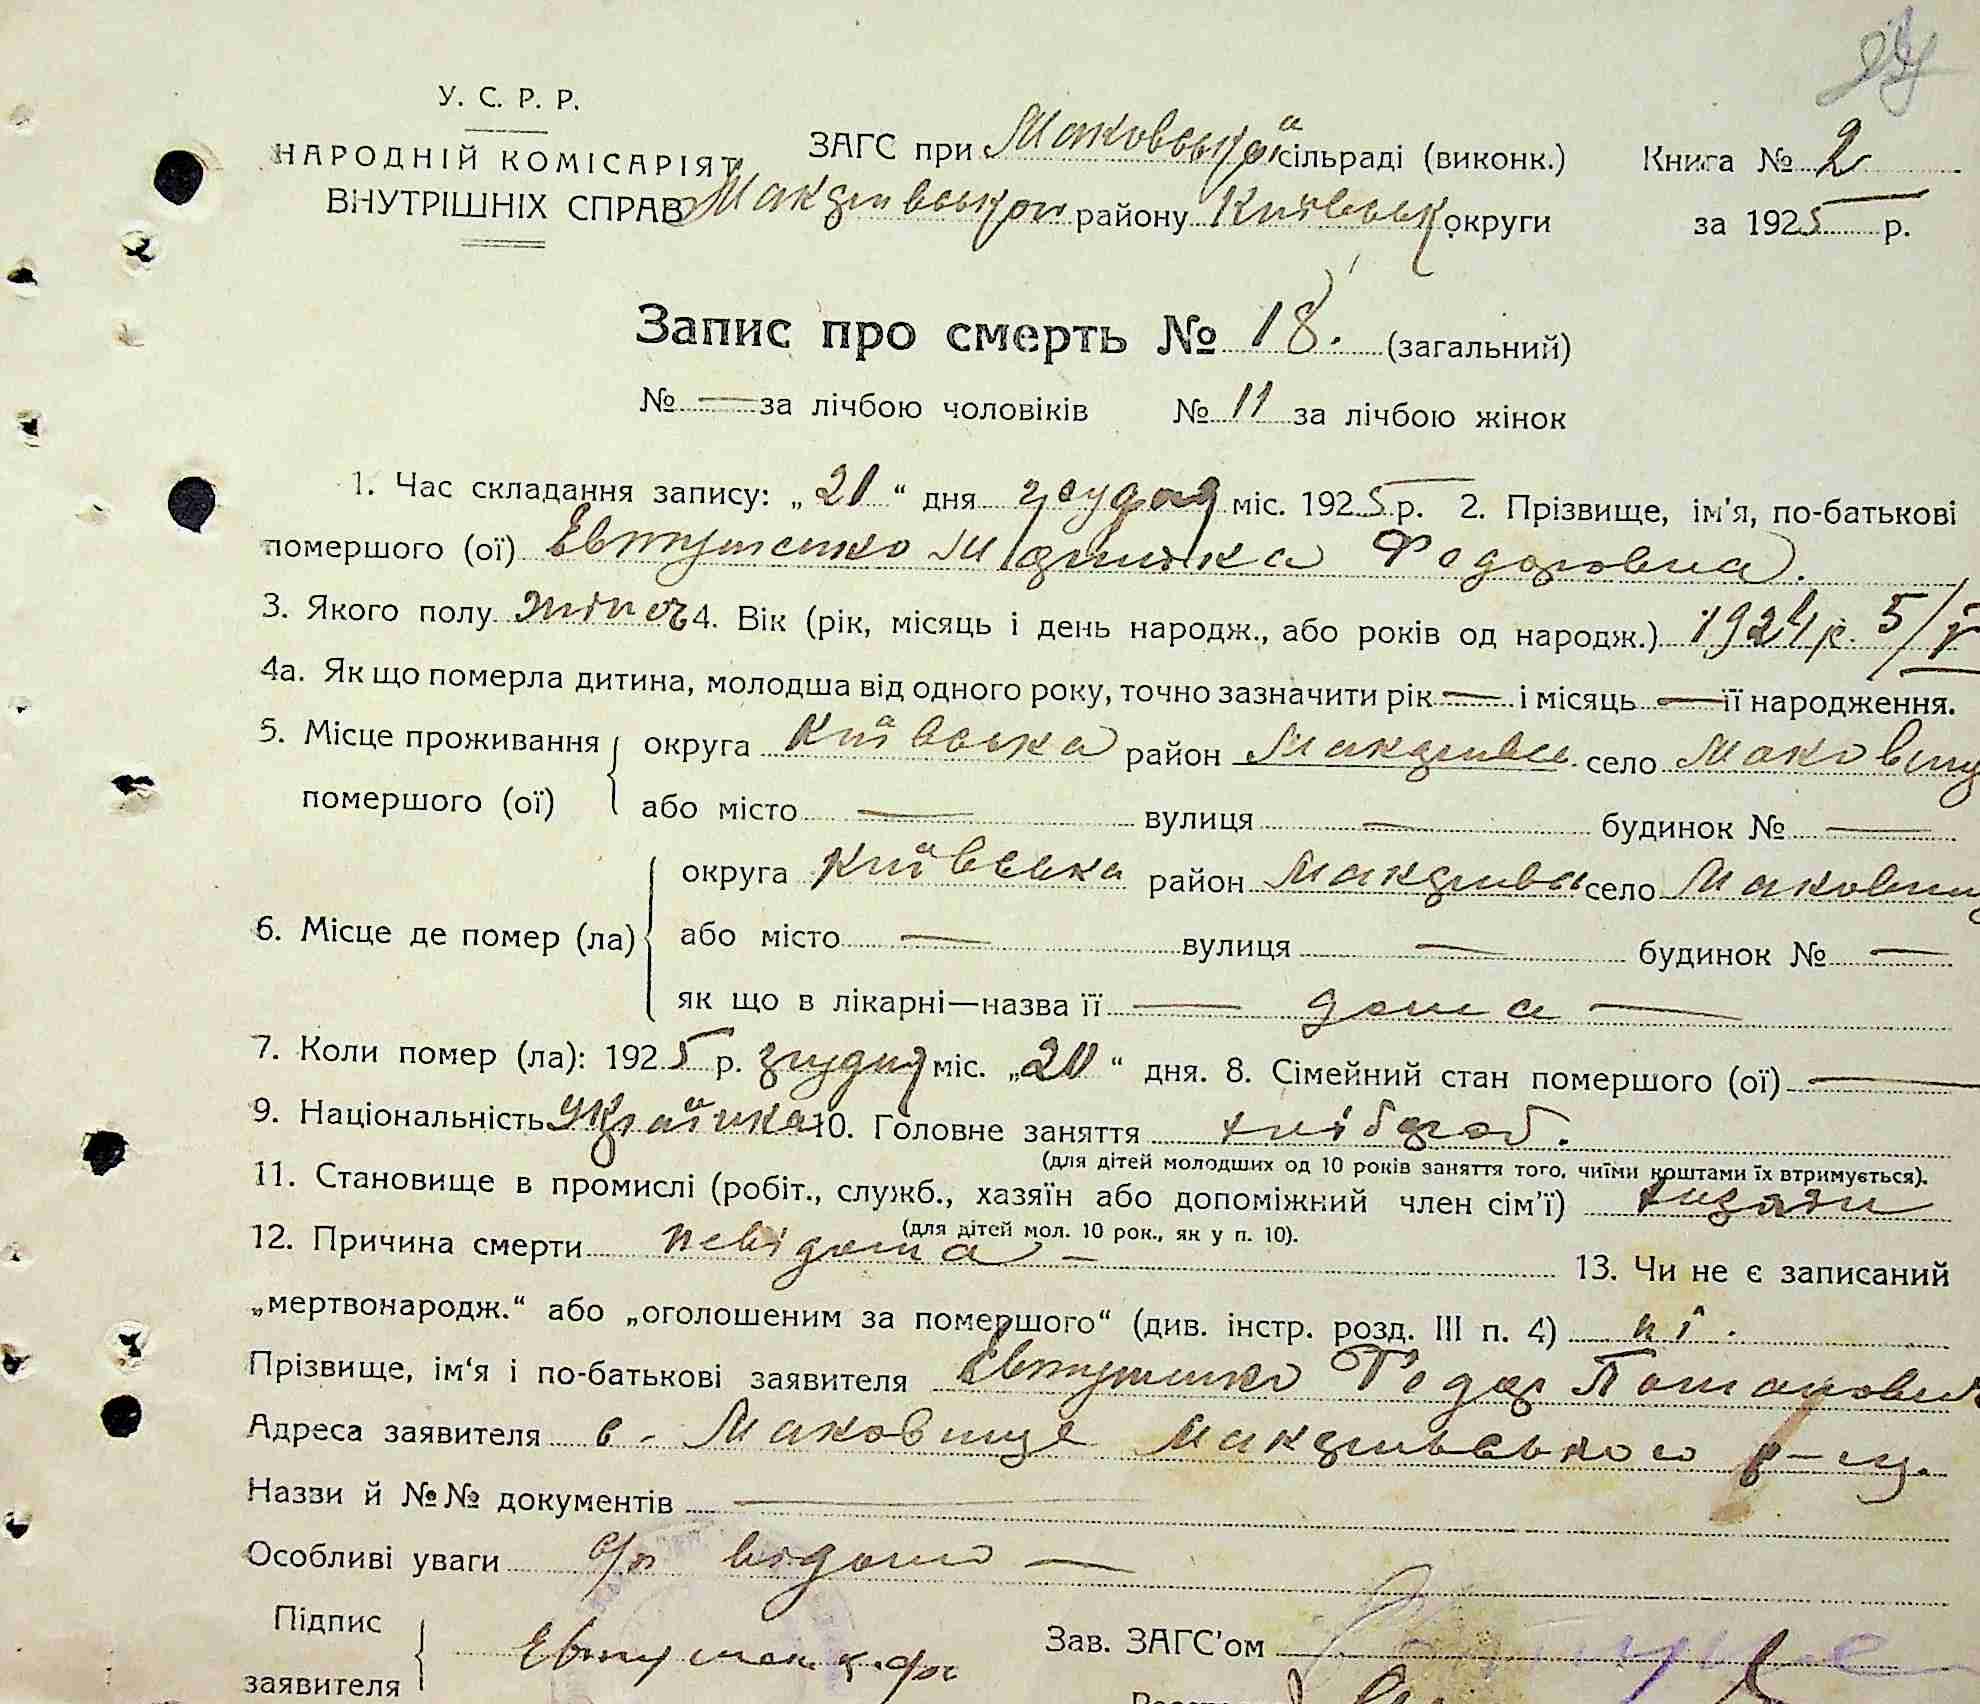 У. С. Р. Р.
НАРОДНІЙ КОМІСАРІЯТ
ВНУТРІШНІХ СПРАВ
ЗАГС при Маковській сільраді (виконк.)
Макарівського району Київськ округи
Книга № 2
за 1925 р.
Запис про смерть № 18. (загальний)
№ — за лічбою чоловіків № 11 за лічбою жінок
1. Час складання запису: „21“ дня грудня міс. 1925 р. 2. Прізвище, ім'я, по-батькові
помершого (ої) Евтушенко Федоровна.
3. Якого полу жіноч 4. Вік (рік, місяць і день народж., або років од народж.) 1924 р. 5/V
4а. Як що померла дитина, молодша від одного року, точно зазначити рік — і місяць — її народження.
5. Місце проживання помершого (ої) округа Київська район Макаривсь село Маковищ
або місто — вулиця — будинок № —
6. Місце де помер (ла) округа Київська район Макаривсь село Маковищ
або місто — вулиця — будинок № —
як що в лікарні—назва її — дома —
7. Коли помер (ла): 1925 р. грудня міс. „20“ дня. 8. Сімейний стан помершого (ої) —
9. Національність Українка 10. Головне заняття хлібороб.
(для дітей молодших од 10 років заняття того, чиїми коштами їх втримується).
11. Становище в промислі (робіт., служб., хазяїн або допоміжний член сім'ї) хазяїн
(для дітей мол. 10 рок., як у п. 10).
12. Причина смерти невідома — 13. Чи не є записаний
„мертвонародж.“ або „оголошеним за помершого“ (див. інстр. розд. III п. 4) ні.
Прізвище, ім'я і по-батькові заявителя Евтушенко Федор Потапович
Адреса заявителя с. Маковище Макарівського р-ну.
Назви й №№ документів —
Особливі уваги —
Підпис
заявителя
Зав. ЗАГС'ом